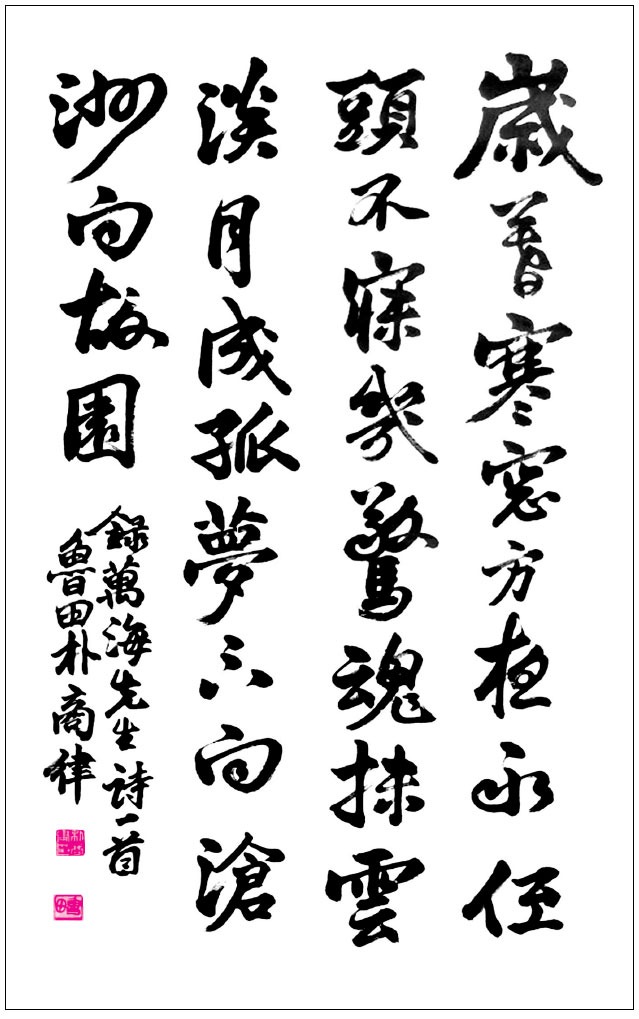 歲暮寒窓方夜永低
頭不寐幾驚魂抹雲
淡月成孤夢不向滄
洲向故園
錄萬海先生詩一首
魯田朴商律